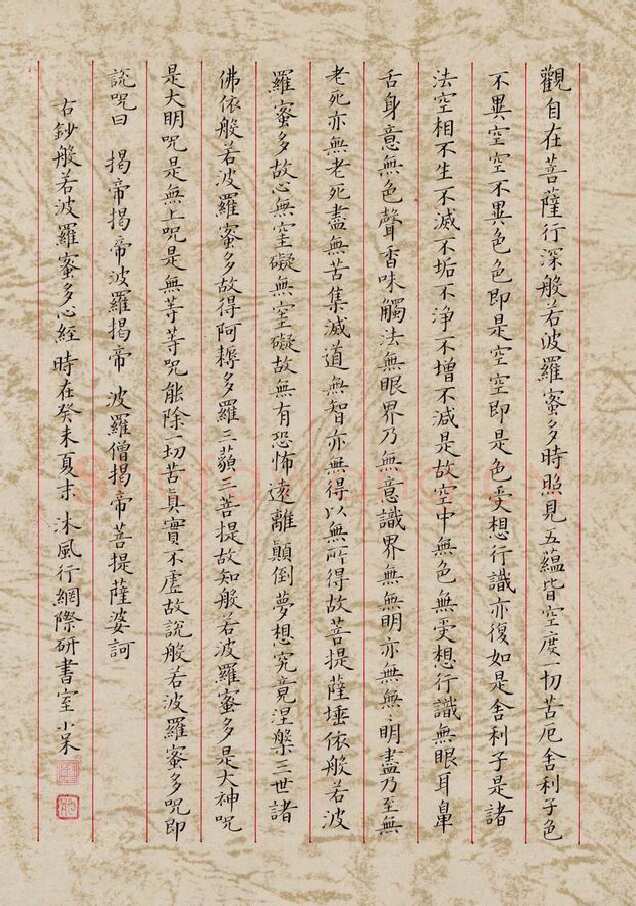 觀自在菩薩行深般若波羅蜜多時照見五蘊皆空度一切苦厄舍利子色
不異空空不異色色即是空空即是色受想行識亦復如是舍利子是諸
法空相不生不滅不垢不淨不增不減是故空中無色無受想行識無眼耳鼻
舌身意無色聲香味觸法無眼界乃無意識界無無明亦無無〻明盡乃至無
老死亦無老死盡無苦集滅道無智亦無得以無所得故菩提薩埵依般若波
羅蜜多故心無罣礙無罣礙故無有恐怖遠離顛倒夢想究竟涅槃三世諸
佛依般若波羅蜜多故得阿耨多羅三藐三菩提故知般若波羅蜜多是大神咒
是大明咒是無上咒是無等等咒能除一切苦真實不虛故說般若波羅蜜多咒即
說咒曰 揭帝揭帝波羅揭帝 波羅僧揭帝菩提薩婆訶
古鈔般若波羅蜜多心經 時在癸未夏末 沐風行網際研書室 小呆